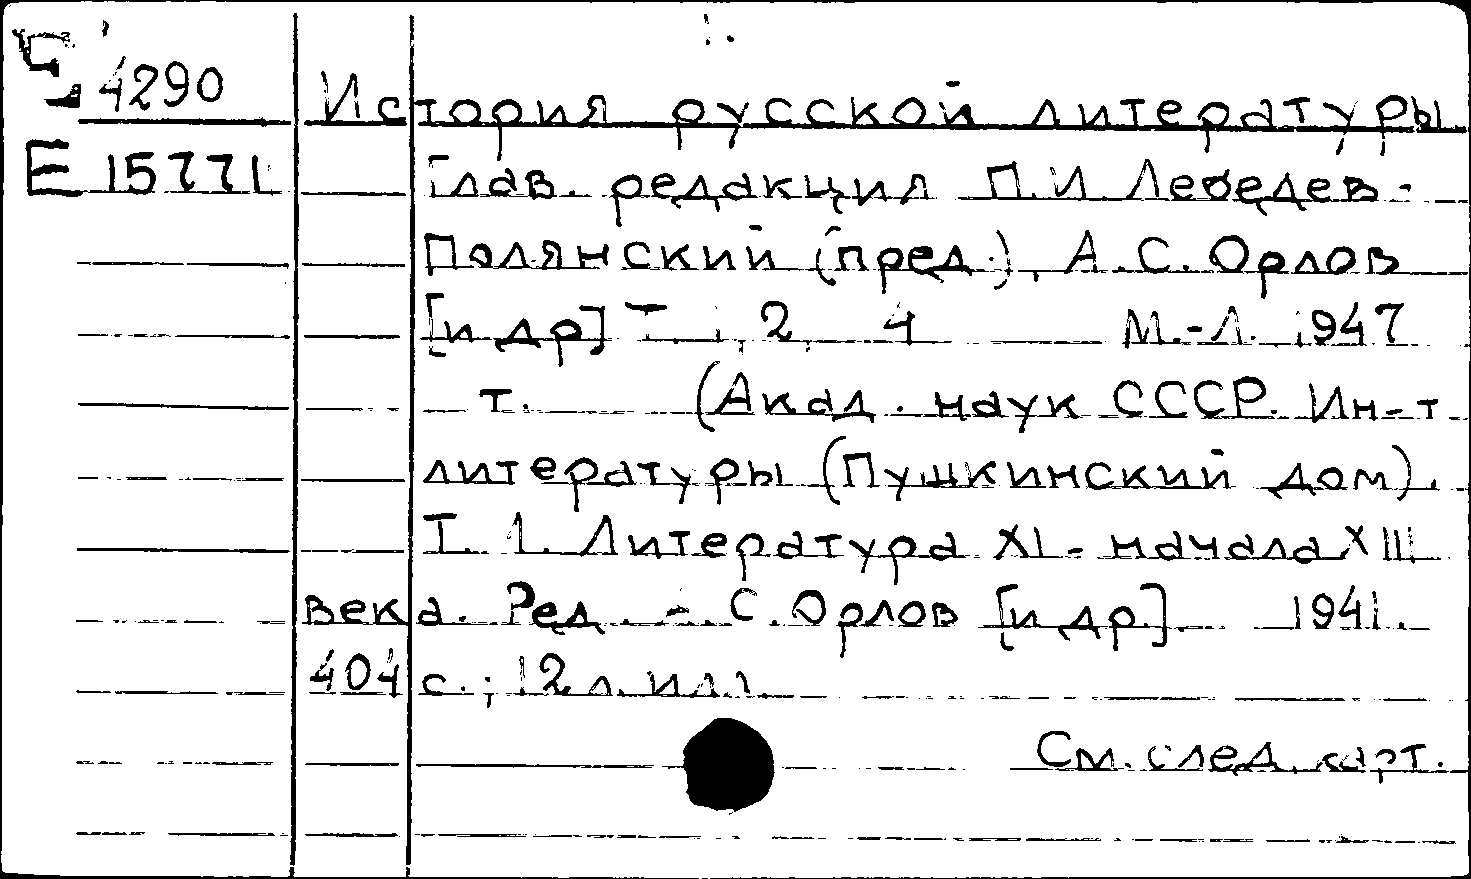 4290
Е 15771
История русской литературы.
Глав. редакция П.И. Лебедев-
Полянский (пред.), А.С. Орлов
[и др] Т. 1, 2, 4 М.-Л. 1947
т. (Акад. наук СССР. Ин-т
литературы (Пушкинский дом).
Т. 1. Литература XI - начала XIII
века. Ред. А.С. Орлов [и др.]. 1941.
404 с.; 12 л. илл.
См. след. карт.